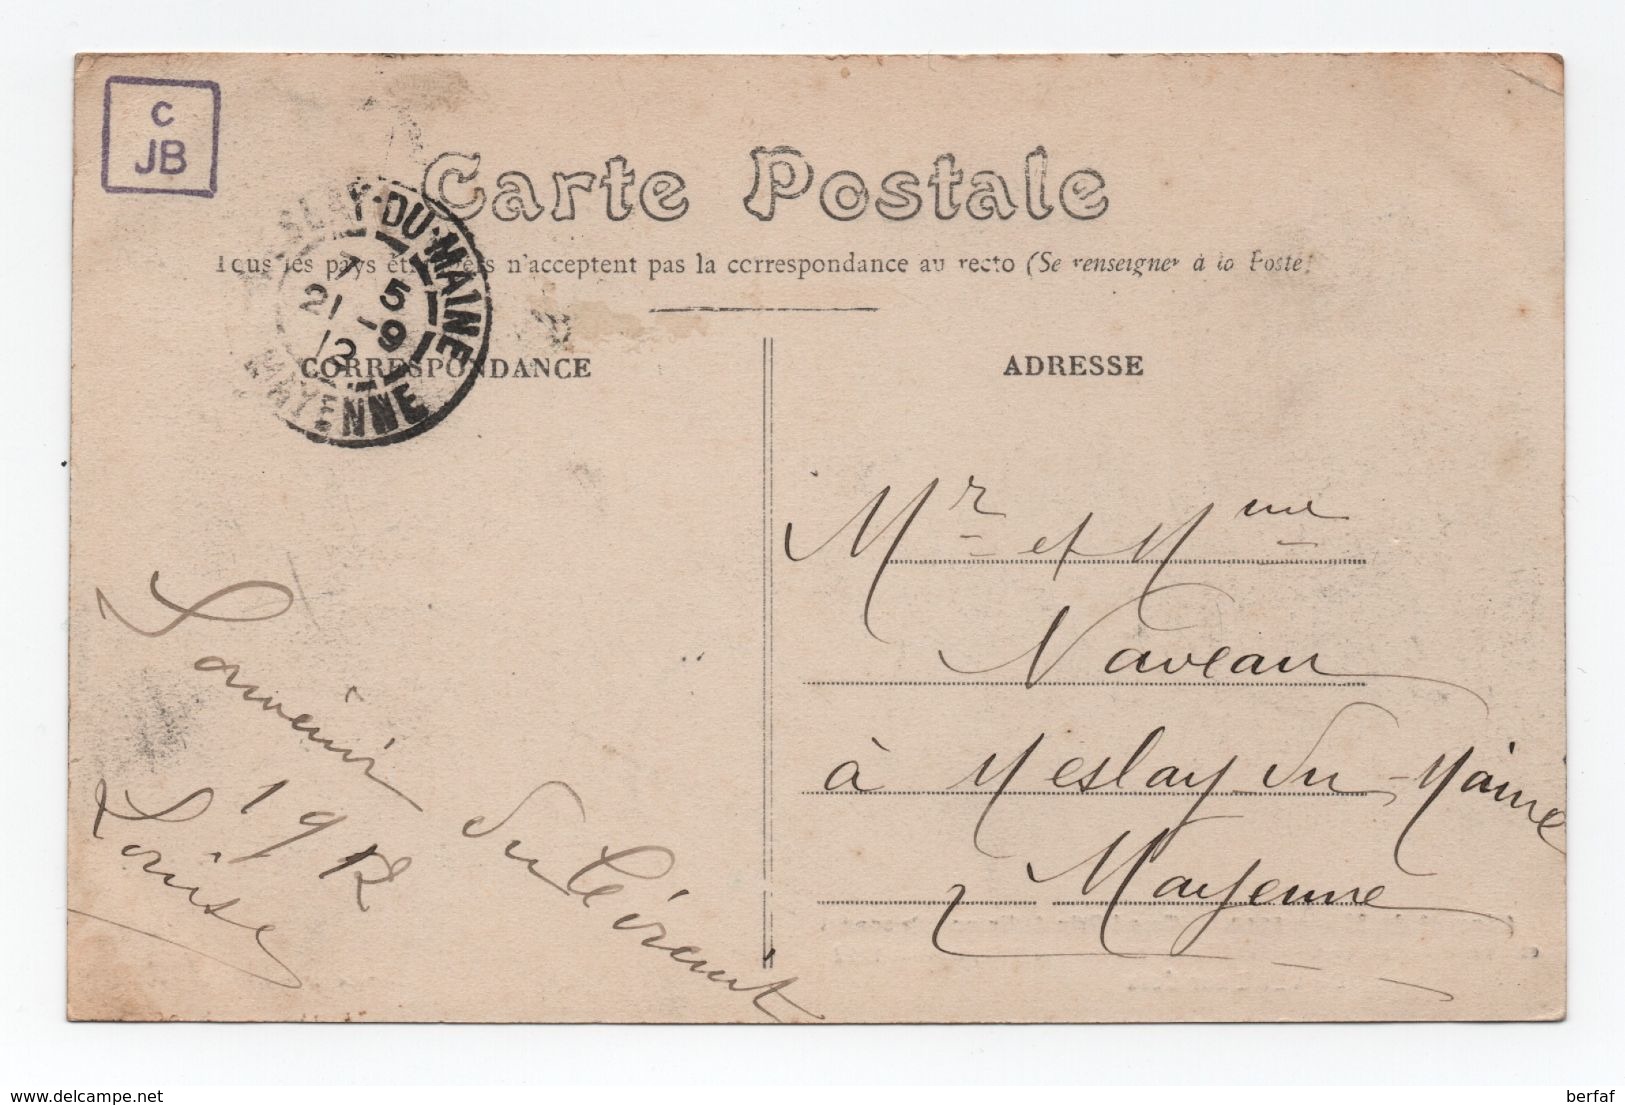 C
JB
Carte Postale
Tous les pays étrangers n'acceptent pas la correspondance au recto (Se renseigner à la Poste)
MESLAY-DU-MAINE
7 5
21 - 9
12
MAYENNE
CORRESPONDANCE
ADRESSE
Mr et Mme
Naveau
à Meslay du Maine
Mayenne
Souvenir
1912
Louise
www.delcampe.net
berfaf